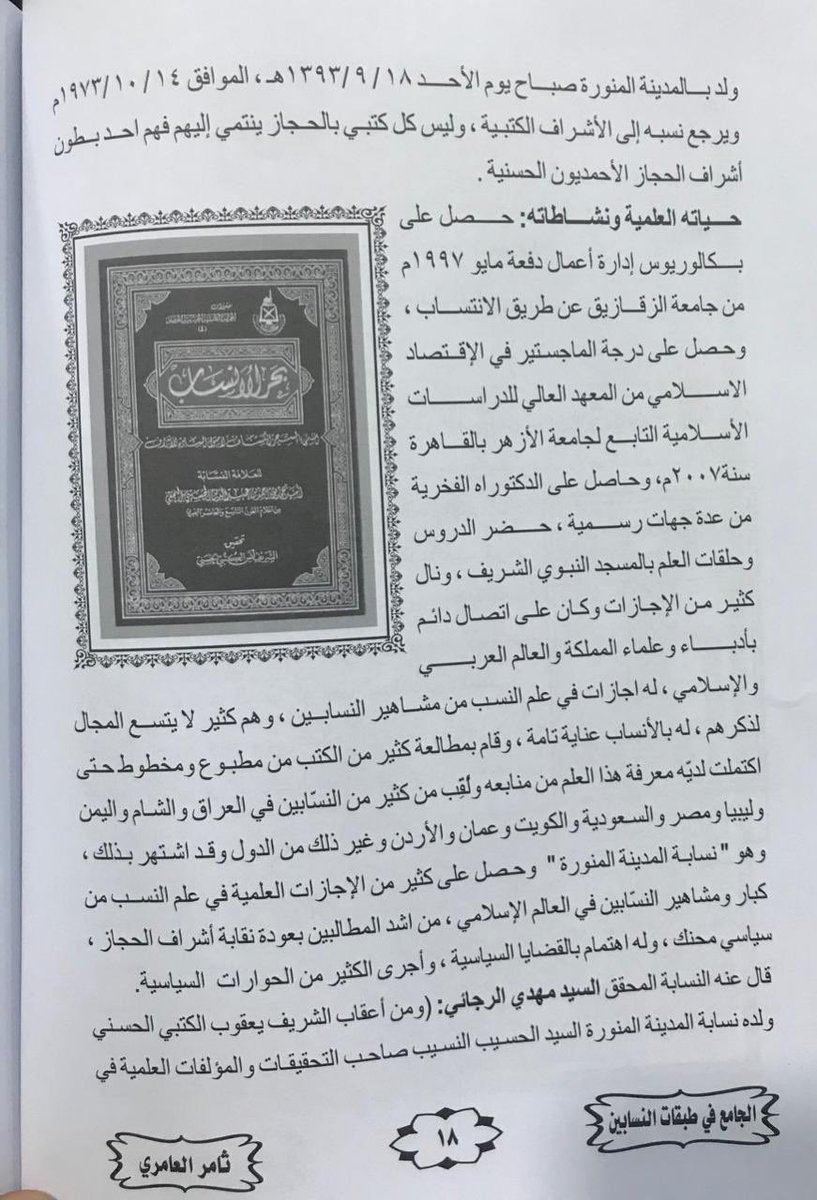 ولد بالمدينة المنورة صباح يوم الأحد ١٨ /٩ /١٣٩٣هـ ، الموافق ١٤ /١٠ /١٩٧٣م
ويرجع نسبه إلى الأشراف الكتبية ، وليس كل كتبي بالحجاز ينتمي إليهم فهم احد بطون
أشراف الحجاز الأحمديون الحسنية .
حياته العلمية ونشاطاته: حصل على
بكالوريوس إدارة أعمال دفعة مايو ١٩٩٧م
من جامعة الزقازيق عن طريق الانتساب ،
وحصل على درجة الماجستير في الإقتصاد
الاسلامي من المعهد العالي للدراسات
الأسلامية التابع لجامعة الأزهر بالقاهرة
سنة٢٠٠٧م، وحاصل على الدكتوراه الفخرية
من عدة جهات رسمية ، حضر الدروس
وحلقات العلم بالمسجد النبوي الشريف ، ونال
كثير من الإجازات وكان على اتصال دائم
بأدباء وعلماء المملكة والعالم العربي
والإسلامي ، له اجازات في علم النسب من مشاهير النسابين ، وهم كثير لا يتسع المجال
لذكرهم ، له بالأنساب عناية تامة ، وقام بمطالعة كثير من الكتب من مطبوع ومخطوط حتى
اكتملت لديّه معرفة هذا العلم من منابعه ولُقِب من كثير من النسّابين في العراق والشام واليمن
وليبيا ومصر والسعودية والكويت وعمان والأردن وغير ذلك من الدول وقد اشتهر بذلك ،
وهو " نسابة المدينة المنورة " وحصل على كثير من الإجازات العلمية في علم النسب من
كبار ومشاهير النسّابين في العالم الإسلامي ، من اشد المطالبين بعودة نقابة أشراف الحجاز ،
سياسي محنك ، وله اهتمام بالقضايا السياسية ، وأجرى الكثير من الحوارات السياسية.
قال عنه النسابة المحقق السيد مهدي الرجائي: (ومن أعقاب الشريف يعقوب الكتبي الحسني
ولده نسابة المدينة المنورة السيد الحسيب النسيب صاحب التحقيقات والمؤلفات العلمية في
بحر الأنساب
للعلامة النسابة
تحقيق
الجامع في طبقات النسابين
١٨
ثامر العامري